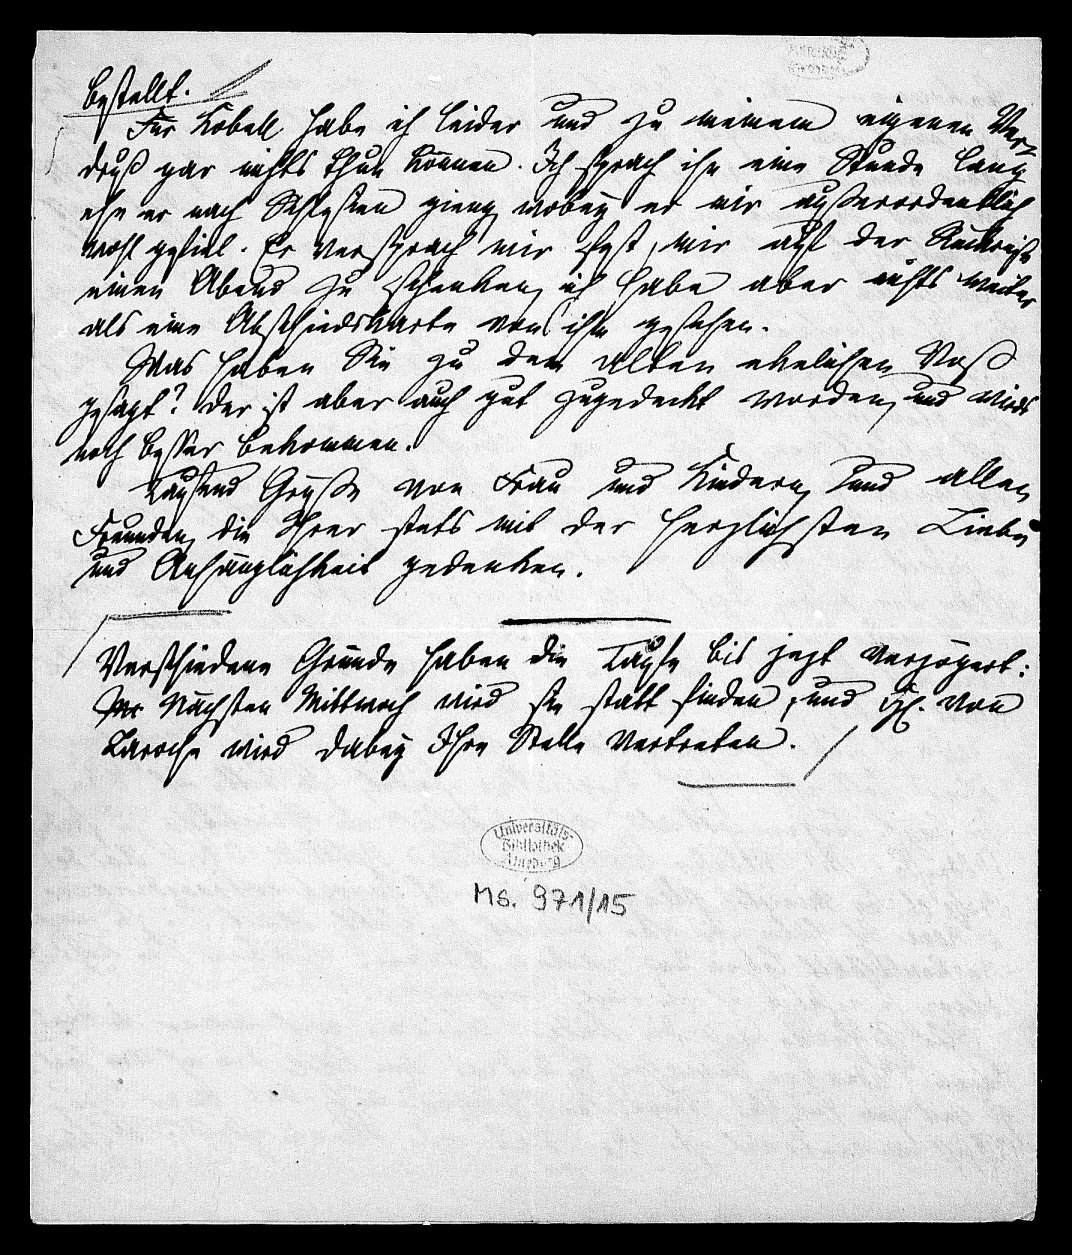 bestellt.
Für Kobell habe ich leider und zu meinem eigenen Ver-
druß gar nichts thun können. Ich sprach ihn eine Stunde lang
ehe er nach Schlesien gieng, wobey er mir außerordentlich
wohl gefiel. Er versprach mir fest, mir auf der Rückreise
einen Abend zu schenken, ich habe aber nichts weiter
als eine Abschiedskarte von ihm gesehen.
Was haben Sie zu dem alten ehrlichen Voß
gesagt? der ist aber auch gut zugedeckt worden, und wirds
noch besser bekommen.
Tausend Grüße von Frau und Kindern, und allen
Freunden, die Ihrer stets mit der herzlichsten Liebe
und Anhänglichkeit gedenken.
Verschiedene Gründe haben die Taufe bis jezt verzögert:
Nächsten Mittwoch wird sie statt finden, und Fr. von
Laroche wird dabey Ihre Stelle vertreten.
Universitäts-
Bibliothek
Ms. 971/15